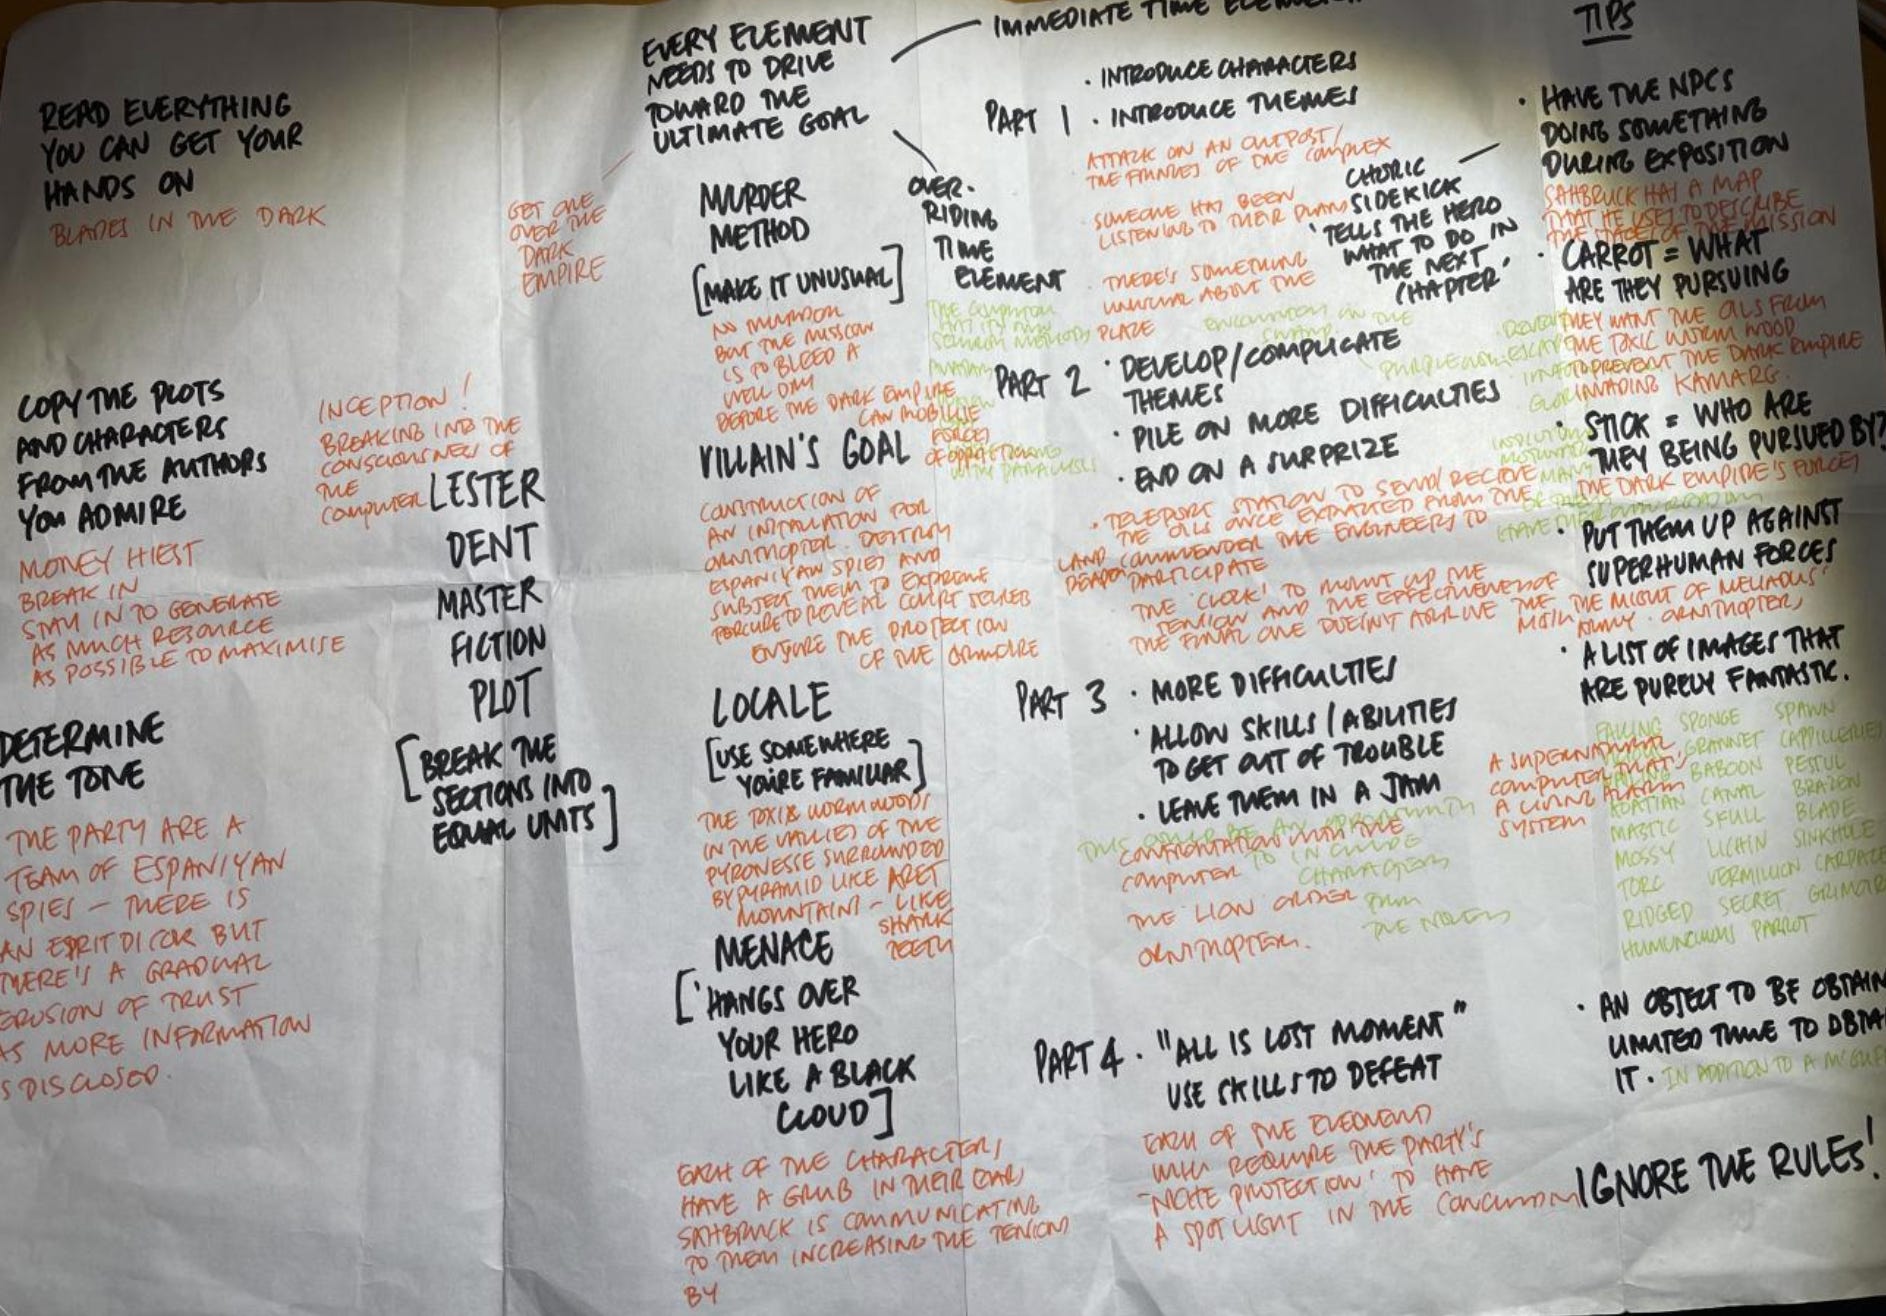 READ EVERYTHING
YOU CAN GET YOUR
HANDS ON
BLADES IN THE DARK
COPY THE PLOTS
AND CHARACTERS
FROM THE AUTHORS
YOU ADMIRE
MONEY HIEST
BREAK IN
STAY IN TO GENERATE
AS MUCH RESOURCE
AS POSSIBLE TO MAXIMISE
DETERMINE
THE TONE
THE PARTY ARE A
TEAM OF ESPANIYAN
SPIES – THERE IS
AN ESPRIT DI COR BUT
THERE'S A GRADUAL
EROSION OF TRUST
AS MORE INFORMATION
IS DISCLOSED.
INCEPTION!
BREAKING INTO THE
CONSCIOUSNESS OF
THE
COMPUTER
LESTER
DENT
MASTER
FICTION
PLOT
[BREAK THE
SECTIONS INTO
EQUAL UNITS]
GET ONE
OVER THE
DARK
EMPIRE
EVERY ELEMENT
NEEDS TO DRIVE
TOWARD THE
ULTIMATE GOAL
IMMEDIATE TIME ELEMENT
OVER-
RIDING
TIME
ELEMENT
MURDER
METHOD
[MAKE IT UNUSUAL]
NO MURDER
BUT THE MISSION
IS TO BLEED A
WELL DRY
BEFORE THE DARK EMPIRE
CAN MOBILISE
FORCES
VILLAIN'S GOAL
CONSTRUCTION OF
AN INSTALLATION FOR
ORNITHOPTER. DESTROY
ESPANIYAN SPIES AND
SUBJECT THEM TO EXTREME
TORTURE TO REVEAL COURT SECRETS
ENSURE THE PROTECTION
OF THE
LOCALE
[USE SOMEWHERE
YOU'RE FAMILIAR]
THE TOXIC WORMWOODS
IN THE VALLIES OF THE
PYRONESSE SURROUNDED
BY PYRAMID LIKE ARET
MOUNTAINS – LIKE
SHARK
TEETH
MENACE
['HANGS OVER
YOUR HERO
LIKE A BLACK
CLOUD]
EACH OF THE CHARACTERS
HAVE A GRUB IN THEIR EAR,
SAHBRUCK IS COMMUNICATING
TO THEM INCREASING THE TENSION
BY
PART 1
· INTRODUCE CHARACTERS
· INTRODUCE THEMES
ATTACK ON AN OUTPOST/
THE FRINGES OF THE COMPLEX
SOMEONE HAS BEEN
LISTENING TO THEIR PLANS
THERE'S SOMETHING
UNUSUAL ABOUT THE
PLACE
CHORIC
SIDEKICK
'TELLS THE HERO
WHAT TO DO IN
THE NEXT
CHAPTER'
PART 2
· DEVELOP/COMPLICATE
THEMES
· PILE ON MORE DIFFICULTIES
· END ON A SURPRIZE
· TELEPORT STATION TO SEND/RECIEVE
THE OILS ONCE EXTRACTED FROM THE
LAND COMMANDER THE ENGINEERS TO
PARTICIPATE
THE 'CLOCK' TO MOUNT UP THE
TENSION AND THE EFFECTIVENESS OF
THE FINAL ONE DOESN'T ARRIVE THE
PART 3
· MORE DIFFICULTIES
· ALLOW SKILLS/ABILITIES
TO GET OUT OF TROUBLE
· LEAVE THEM IN A JAM
THIS COULD BE AN OPPORTUNITY
TO INCLUDE
CHARACTERS
FROM
THE NOVELS
CONFRONTATION WITH THE
COMPUTER
THE LION ORDER
ORNITHOPTER.
A SUPERNATURAL
COMPUTER THAT'S
A LIVING ALARM
SYSTEM
PART 4
· "ALL IS LOST MOMENT"
USE SKILLS TO DEFEAT
EACH OF THE ELEMENTS
WILL REQUIRE THE PARTY'S
'NICHE PROTECTION' TO HAVE
A SPOTLIGHT IN THE CONCLUSION
TIPS
· HAVE THE NPCS
DOING SOMETHING
DURING EXPOSITION
SAHBRUCK HAS A MAP
THAT HE USES TO DESCRIBE
THE STAGES OF THE MISSION
· CARROT = WHAT
ARE THEY PURSUING
THEY WANT THE OILS FROM
THE TOXIC WORM WOOD
TO PREVENT THE DARK EMPIRE
INVADING KAMARG.
· STICK = WHO ARE
THEY BEING PURSUED BY?
THE DARK EMPIRE'S FORCES
· PUT THEM UP AGAINST
SUPERHUMAN FORCES
THE MIGHT OF MELIADUS'
ARMY · ORNITHOPTER,
· A LIST OF IMAGES THAT
ARE PURELY FANTASTIC.
SPONGE SPAWN
BABOON
CANAL BRAZEN
SKULL BLADE
MOSSY LICHIN SINKHOLE
TORC VERMILLION
RIDGED SECRET
PARROT
· AN OBJECT TO BE OBTAIN
LIMITED TIME TO OBTA
IT · IN ADDITION TO A
IGNORE THE RULES!